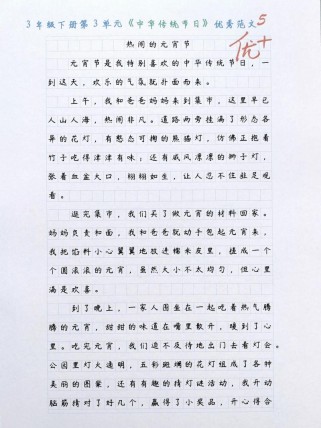 3年级下册第3单元《中华传统节日》优秀范文5
优+
热闹的元宵节
元宵节是我特别喜欢的中华传统节日，一
到这天，欢乐的气氛就扑面而来。
上午，我和爸爸妈妈来到集市，这里早已
人山人海，热闹非凡。道路两旁挂满了形态各
异的花灯，有憨态可掬的熊猫灯，仿佛正抱着
竹子吃得津津有味；还有威风凛凛的狮子灯，
张着血盆大口，栩栩如生，让人忍不住驻足观
看。
逛完集市，我们买了做元宵的材料回家。
妈妈负责和面，我和爸爸就动手包起元宵来，
我把馅料小心翼翼地放进糯米皮里，搓成一个
个圆滚滚的元宵，虽然大小不太均匀，但心里
满是欢喜。
到了晚上，一家人围坐在一起吃着热气腾
腾的元宵，甜甜的味道在嘴里散开，暖到了心
里。吃完元宵，我们迫不及待地出门去看灯会。
公园里灯火通明，五彩斑斓的花灯组成了各种
美丽的图案，还有有趣的猜灯谜活动，我开动
脑筋猜对了好几个，赢得了小奖品，开心得合